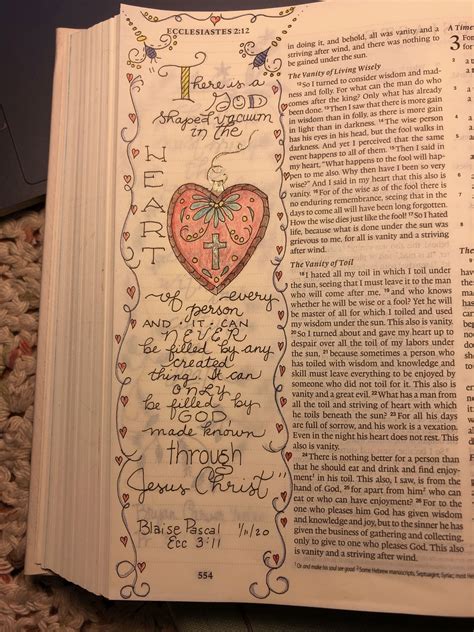 ECCLESIASTES 2:12
There is a
GOD
shaped vacuum
in the
HEART
of every
person
AND IT CAN
NEVER
be filled by any
created
thing. It can
ONLY
be filled by
GOD
made known
through
Jesus Christ"
Blaise Pascal
Ecc 3:11 1/11/20
554
in doing it, and behold, all was vanity and a
striving after wind, and there was nothing to
be gained under the sun.
The Vanity of Living Wisely
12 So I turned to consider wisdom and mad-
ness and folly. For what can the man do who
comes after the king? Only what has already
been done. 13 Then I saw that there is more gain
in wisdom than in folly, as there is more gain
in light than in darkness. 14 The wise person
has his eyes in his head, but the fool walks in
darkness. And yet I perceived that the same
event happens to all of them. 15 Then I said in
my heart, "What happens to the fool will hap-
pen to me also. Why then have I been so very
wise?" And I said in my heart that this also is
vanity. 16 For of the wise as of the fool there is
no enduring remembrance, seeing that in the
days to come all will have been long forgotten.
How the wise dies just like the fool! 17 So I hated
life, because what is done under the sun was
grievous to me, for all is vanity and a striving
after wind.
The Vanity of Toil
18 I hated all my toil in which I toil under
the sun, seeing that I must leave it to the man
who will come after me, 19 and who knows
whether he will be wise or a fool? Yet he will
be master of all for which I toiled and used
my wisdom under the sun. This also is vanity.
20 So I turned about and gave my heart up to
despair over all the toil of my labors under
the sun, 21 because sometimes a person who
has toiled with wisdom and knowledge and
skill must leave everything to be enjoyed by
someone who did not toil for it. This also is
vanity and a great evil. 22 What has a man from
all the toil and striving of heart with which
he toils beneath the sun? 23 For all his days
are full of sorrow, and his work is a vexation.
Even in the night his heart does not rest. This
also is vanity.
24 There is nothing better for a person than
that he should eat and drink and find enjoy-
ment in his toil. This also, I saw, is from the
hand of God, 25 for apart from him who can
eat or who can have enjoyment? 26 For to the
one who pleases him God has given wisdom
and knowledge and joy, but to the sinner he has
given the business of gathering and collecting,
only to give to one who pleases God. This also
is vanity and a striving after wind.
1 Or and make his soul see good 2 Some Hebrew manuscripts, Septuagint, Syriac; most
A Time
3